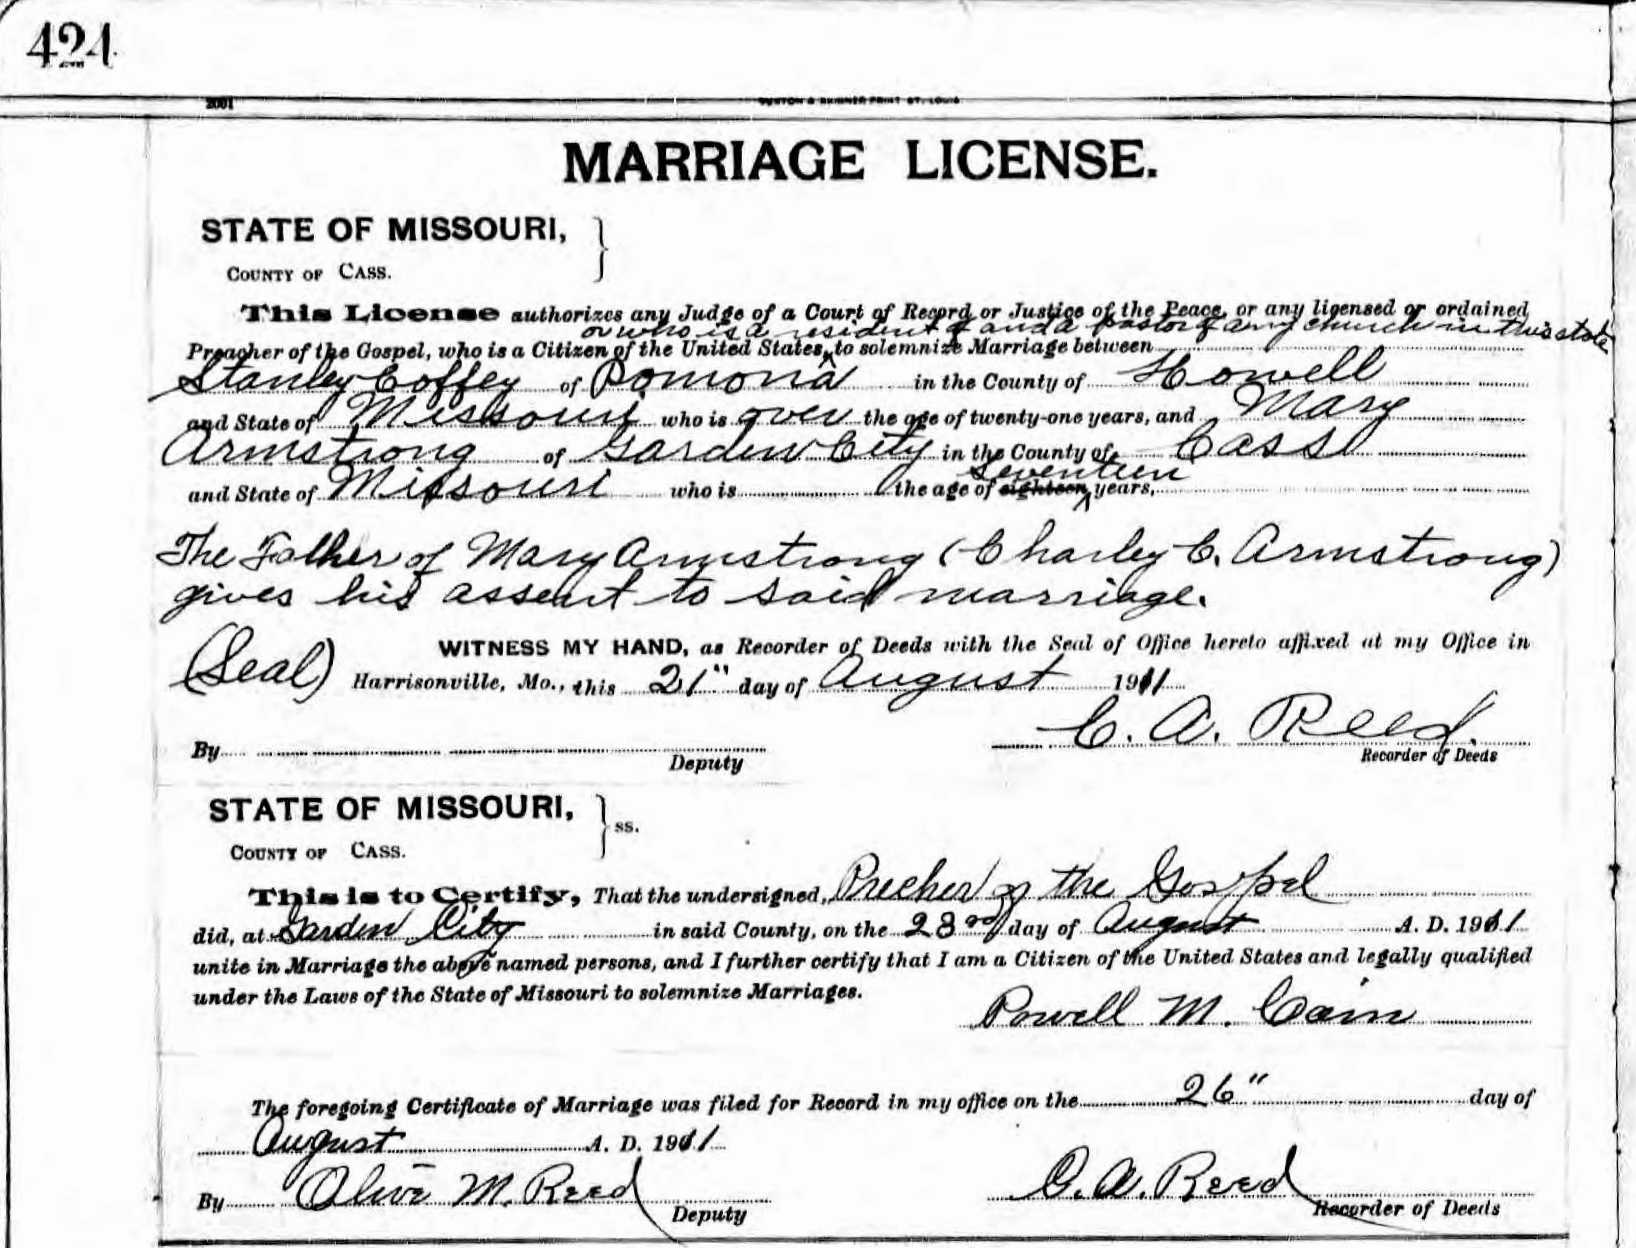 424
2001
BUXTON & SKINNER PRINT ST. LOUIS
MARRIAGE LICENSE.
STATE OF MISSOURI,
COUNTY OF CASS.
This License authorizes any Judge of a Court of Record or Justice of the Peace, or any licensed or ordained
or who is a resident of and a pastor of any church in this state
Preacher of the Gospel, who is a Citizen of the United States, to solemnize Marriage between
Stanley Coffey of Pomona in the County of Howell
and State of Missouri who is over the age of twenty-one years, and Mary
Armstrong of Garden City in the County of Cass
seventeen
and State of Missouri who is the age of eighteen years,
The Father of Mary Armstrong (Charley C. Armstrong)
gives his assent to said marriage.
WITNESS MY HAND, as Recorder of Deeds with the Seal of Office hereto affixed at my Office in
(Seal) Harrisonville, Mo., this 21" day of August 1911
C. A. Reed.
By Deputy Recorder of Deeds
STATE OF MISSOURI, ss.
COUNTY OF CASS.
This is to Certify, That the undersigned, Precher of the Gospel
did, at Garden City in said County, on the 23rd day of August A. D. 1911
unite in Marriage the above named persons, and I further certify that I am a Citizen of the United States and legally qualified
under the Laws of the State of Missouri to solemnize Marriages.
Powell M. Cain
The foregoing Certificate of Marriage was filed for Record in my office on the 26" day of
August A. D. 1911
By Olive M. Reed C. A. Reed
Deputy Recorder of Deeds